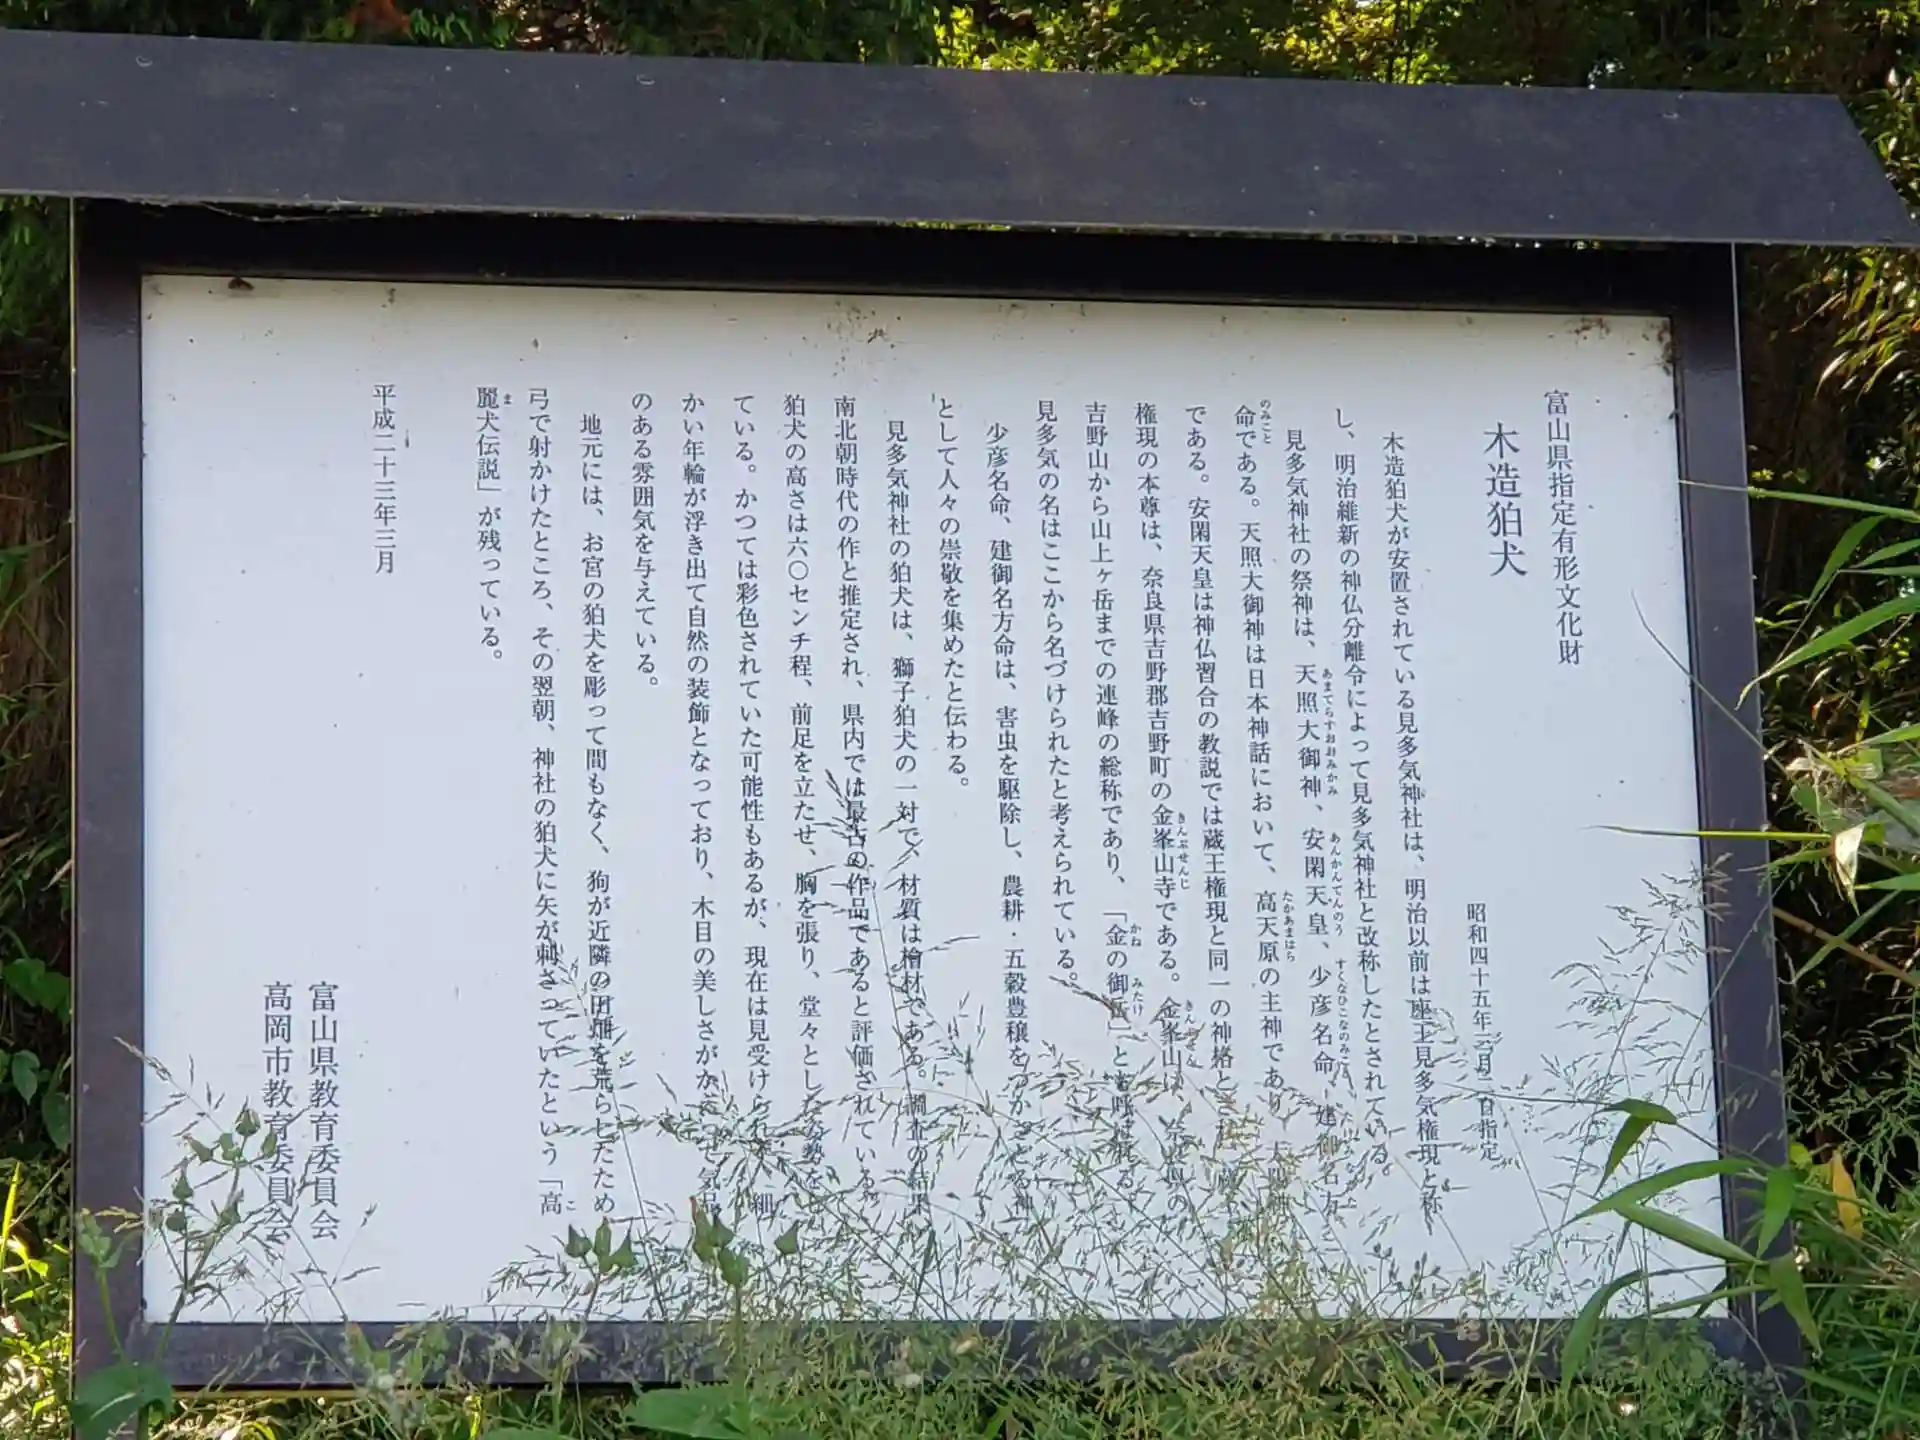 富山県指定有形文化財
木造狛犬
昭和四十五年 月 日指定
木造狛犬が安置されている見多気神社は、明治以前は座主見多気権現と称
し、明治維新の神仏分離令によって見多気神社と改称したとされている。
見多気神社の祭神は、天照大御神、安閑天皇、少彦名命、建御名方
あまてらすおおみかみ
あんかんてんのう
命である。天照大御神は日本神話において、高天原の主神であり、太陽神
のみこと
たかあまはら
である。安閑天皇は神仏習合の教説では蔵王権現と同一の神格とされ、蔵
権現の本尊は、奈良県吉野郡吉野町の金峯山寺である。金峯山は、奈良県の
きんぶせんじ
吉野山から山上ヶ岳までの連峰の総称であり、「金の御岳」とも呼ばれる。
かね
みたけ
見多気の名はここから名づけられたと考えられている。
少彦名命、建御名方命は、害虫を駆除し、農耕・五穀豊穣をつかさどる神
として人々の崇敬を集めたと伝わる。
見多気神社の狛犬は、獅子狛犬の一対で、材質は檜材である。調査の結果、
南北朝時代の作と推定され、県内では最古の作品であると評価されている。
狛犬の高さは六〇センチ程、前足を立たせ、胸を張り、堂々とした姿勢をし
ている。かつては彩色されていた可能性もあるが、現在は見受けられず、細
かい年輪が浮き出て自然の装飾となっており、木目の美しさがかえって気品
のある雰囲気を与えている。
地元には、お宮の狛犬を彫って間もなく、狗が近隣の田畑を荒らしたため
弓で射かけたところ、その翌朝、神社の狛犬に矢が刺さっていたという「高
こ
麗犬伝説」が残っている。
ま
平成二十三年三月
富山県教育委員会
高岡市教育委員会